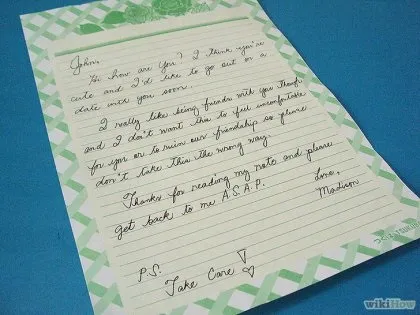 John,
Hi how are you? I think you're
cute and I'd like to go out on a
date with you soon.
I really like being friends with you though
and I don't want this to feel uncomfortable
for you or to ruin our friendship so please
don't take this the wrong way.
Thanks for reading my note and please
get back to me A.S.A.P.
Love,
Madison
P.S.
Take Care!
wikiHow